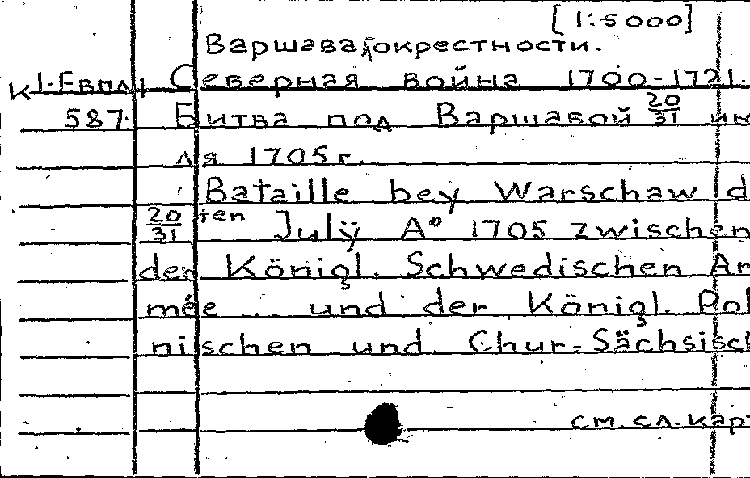 [1:5000]
Варшава, окрестности.
К 1-Евпл Северная война 1700-1721.
587. Битва под Варшавой 20/31 ию
ля 1705г.
Bataille bey Warschaw d
20/31 ten Julÿ A° 1705 zwischen
der Königl. Schwedischen Ar
mée ... und der Königl. Pol
nischen und Chur-Sächsisch
см. сл. карт